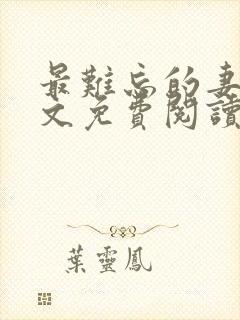 最難忘的妻
文免費閱讀
葉靈鳳